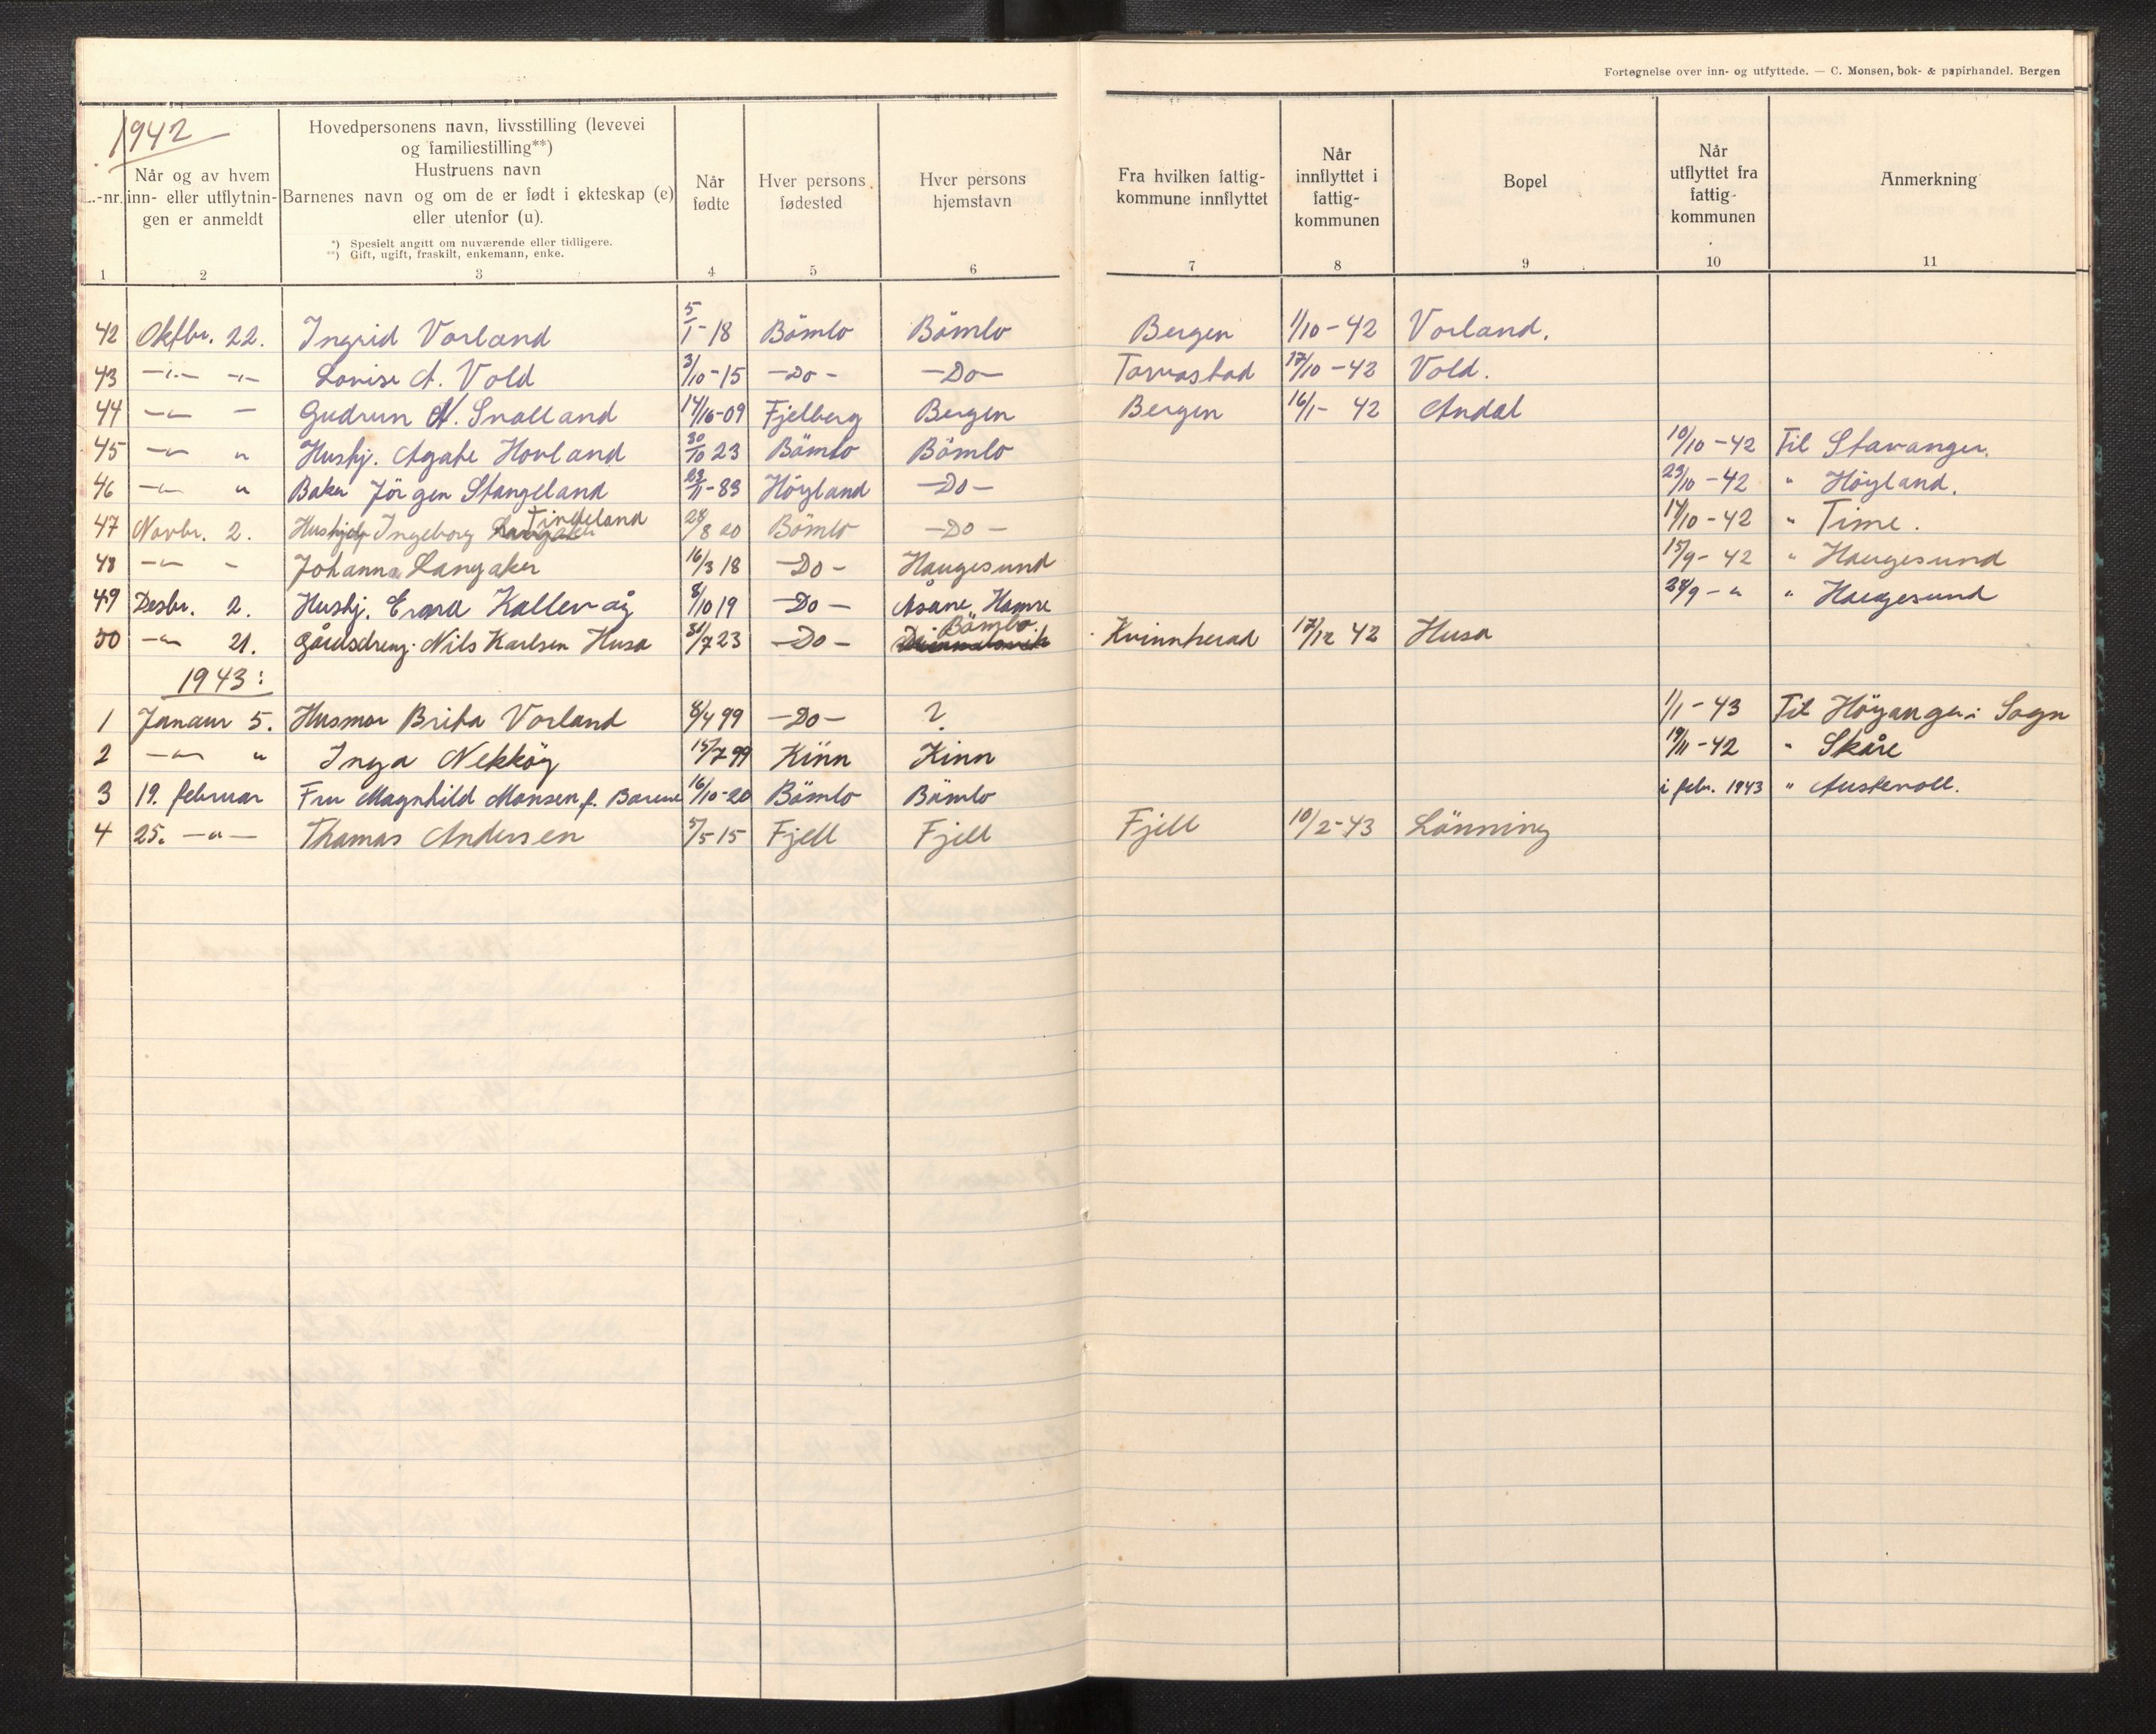 Fortegnelse over inn- og utflyttede. — C. Monsen, bok- & papirhandel. Bergen
1942
..-nr.
1
Når og av hvem
inn- eller utflytnin-
gen er anmeldt
2
Hovedpersonens navn, livsstilling (levevei
og familiestilling**)
Hustruens navn
Barnenes navn og om de er født i ekteskap (e)
eller utenfor (u).
*) Spesielt angitt om nuværende eller tidligere.
**) Gift, ugift, fraskilt, enkemann, enke.
3
Når
fødte
4
Hver persons
fødested
5
Hver persons
hjemstavn
6
Fra hvilken fattig-
kommune innflyttet
7
Når
innflyttet i
fattig-
kommunen
8
Bopel
9
Når
utflyttet fra
fattig-
kommunen
10
Anmerkning
11
42 Oktbr. 22. Ingrid Vorland 5/1-18 Bömlo Bömlo Bergen 1/10-42 Vorland.
43 -"- -"- Lovise A. Vold 3/10-15 -Do- -Do- Torvastad 17/10-42 Vold.
44 -"- - Gudrun N. 14/10-09 Fjelberg Bergen Bergen 16/1- 42 Andal
45 -"- " Hushj. Agate Hovland 30/10 23 Bömlo Bömlo 10/10-42 Til Stavanger.
46 -"- " Baker Jörgen Stangeland 23/11-83 Höyland -Do- 23/10-42 " Höyland.
47 Novbr. 2. Hushjelp Ingeborg Langaker Tindeland 28/8 20 Bömlo -Do- 14/10-42 " Time.
48 -"- - Johanna Langaker 16/3 18 -Do- Haugesund 15/9- 42 " Haugesund
49 Desbr. 2. Hushj. Erna Kallevåg 8/10 19 -Do- Åsane, Hamre 28/9-" " Haugesund
50 -"- 21. Gårdsdreng. Nils Karlsen Husa 31/7 23 -Do- Bömlo. Kvinnherad 17/12 42 Husa
1943:
1 Januar 5. Husmor Brita Vorland 8/4 99 -Do- ? 1/1-43 Til Höyanger i Sogn
2 -"- " Inga Nekköy 15/7 99 Kinn Kinn 19/11-42 " Skåre
3 19. februar Fru Magnhild Monsen, f. 16/10-20 Bömlo Bömlo i febr. 1943 " Austevoll.
4 25. -"- Thomas Andersen 5/5-15 Fjell Fjell Fjell 10/2-43 Lönning